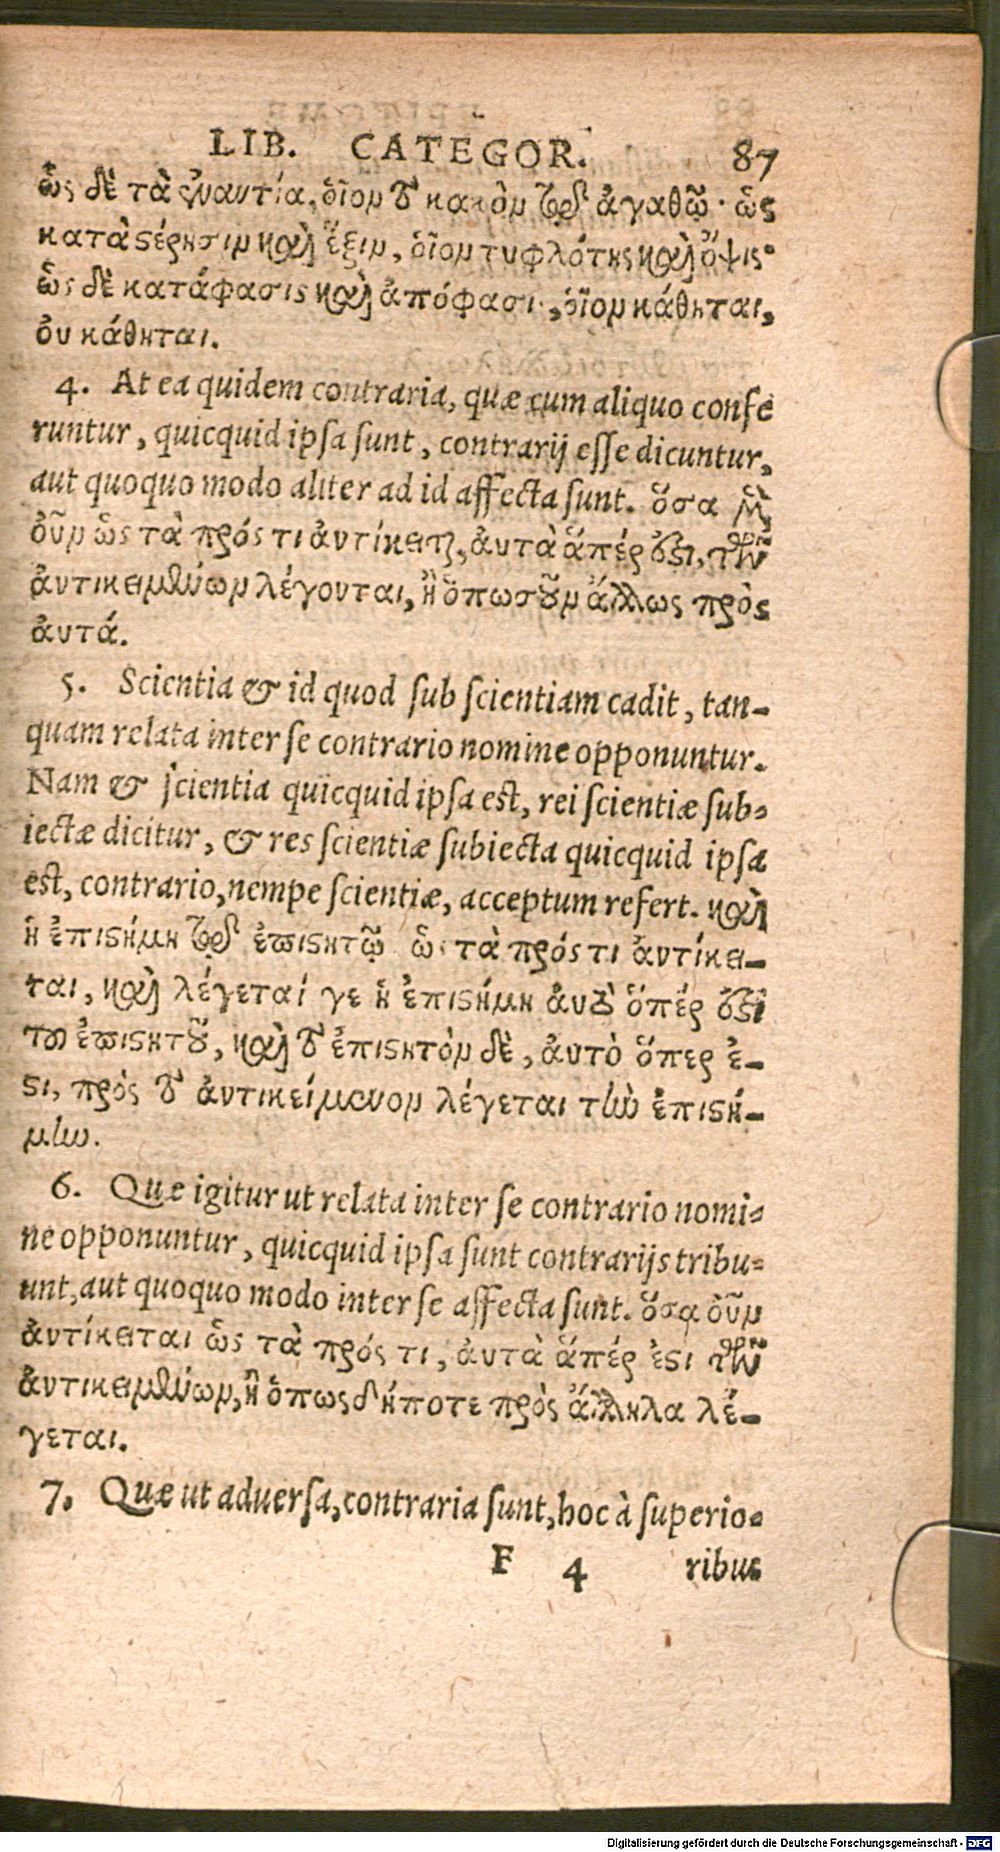 LIB. CATEGOR. 87
ὡς δὲ τὰ ἐναντία, οἷον τὸ κακὸν τῷ ἀγαθῷ· ὡς
κατὰ στέρησιν καὶ ἕξιν, οἷον τυφλότης καὶ ὄψις·
ὡς δὲ κατάφασις καὶ ἀπόφασις, οἷον κάθηται,
οὐ κάθηται.
4. At ea quidem contraria, quæ cum aliquo confe
runtur, quicquid ipsa sunt, contrarij esse dicuntur,
aut quoquo modo aliter ad id affecta sunt. ὅσα μὲν
οὖν ὡς τὰ πρός τι ἀντίκειται, αὐτὰ ἅπέρ ἐστι, τῶν
ἀντικειμένων λέγονται, ἢ ὁπωσοῦν ἄλλως πρὸς
αὐτά.
5. Scientia & id quod sub scientiam cadit, tan-
quam relata inter se contrario nomine opponuntur.
Nam & scientia quicquid ipsa est, rei scientiæ sub-
iectæ dicitur, & res scientiæ subiecta quicquid ipsa
est, contrario, nempe scientiæ, acceptum refert. καὶ
ἡ ἐπιστήμη τῷ ἐπιστητῷ ὡς τὰ πρός τι ἀντίκει-
ται, καὶ λέγεταί γε ἡ ἐπιστήμη αὐτὸ ὅπέρ ἐστι
τοῦ ἐπιστητοῦ, καὶ τὸ ἐπιστητὸν δὲ, αὐτὸ ὅπερ ἐ-
στι, πρὸς τὸ ἀντικείμενον λέγεται τὴν ἐπιστή-
μην.
6. Quæ igitur ut relata inter se contrario nomi-
ne opponuntur, quicquid ipsa sunt contrarijs tribu-
unt, aut quoquo modo inter se affecta sunt. ὅσα οὖν
ἀντίκειται ὡς τὰ πρός τι, αὐτὰ ἅπέρ ἐστι τῶν
ἀντικειμένων, ἢ ὁπωσδήποτε πρὸς ἄλληλα λέ-
γεται.
7. Quæ ut aduersa, contraria sunt, hoc à superio-
F 4 ribus
Digitalisierung gefördert durch die Deutsche Forschungsgemeinschaft - DFG